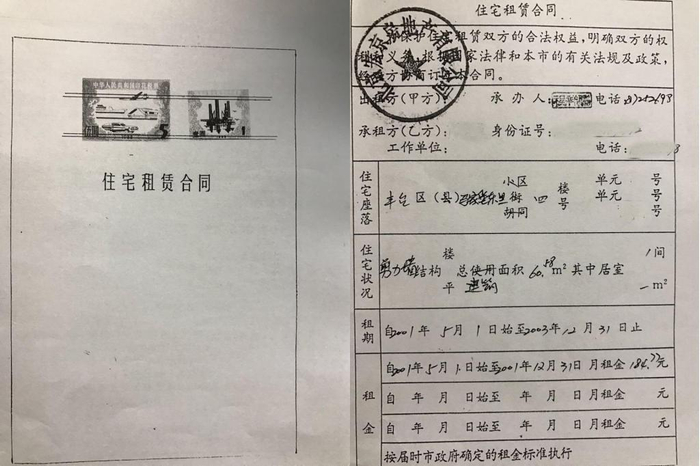 中华人民共和国印花税票
伍圆
5
1
住宅租赁合同
住宅租赁合同
保护住宅租赁双方的合法权益,明确双方的权
义务,根据国家法律和本市的有关法规及政策,
方协商订立本合同。
出租方(甲方)
承办人:
电话
承租方(乙方):
身份证号:
工作单位:
电话:
住宅座落
小区 楼 单元 号
丰台区(县) 街 四
胡同 号 单元 号
住宅状况
楼 1间
剪力墙结构 总使用面积60.58m²其中居室
平 建筑 m²
租期
自2001年5月1日始至2003年12月31日止
租金
自2001年5月1日始至2001年12月31日月租金186.77元
自 年 月 日始至 年 月 日月租金 元
自 年 月 日始至 年 月 日月租金 元
按届时市政府确定的租金标准执行